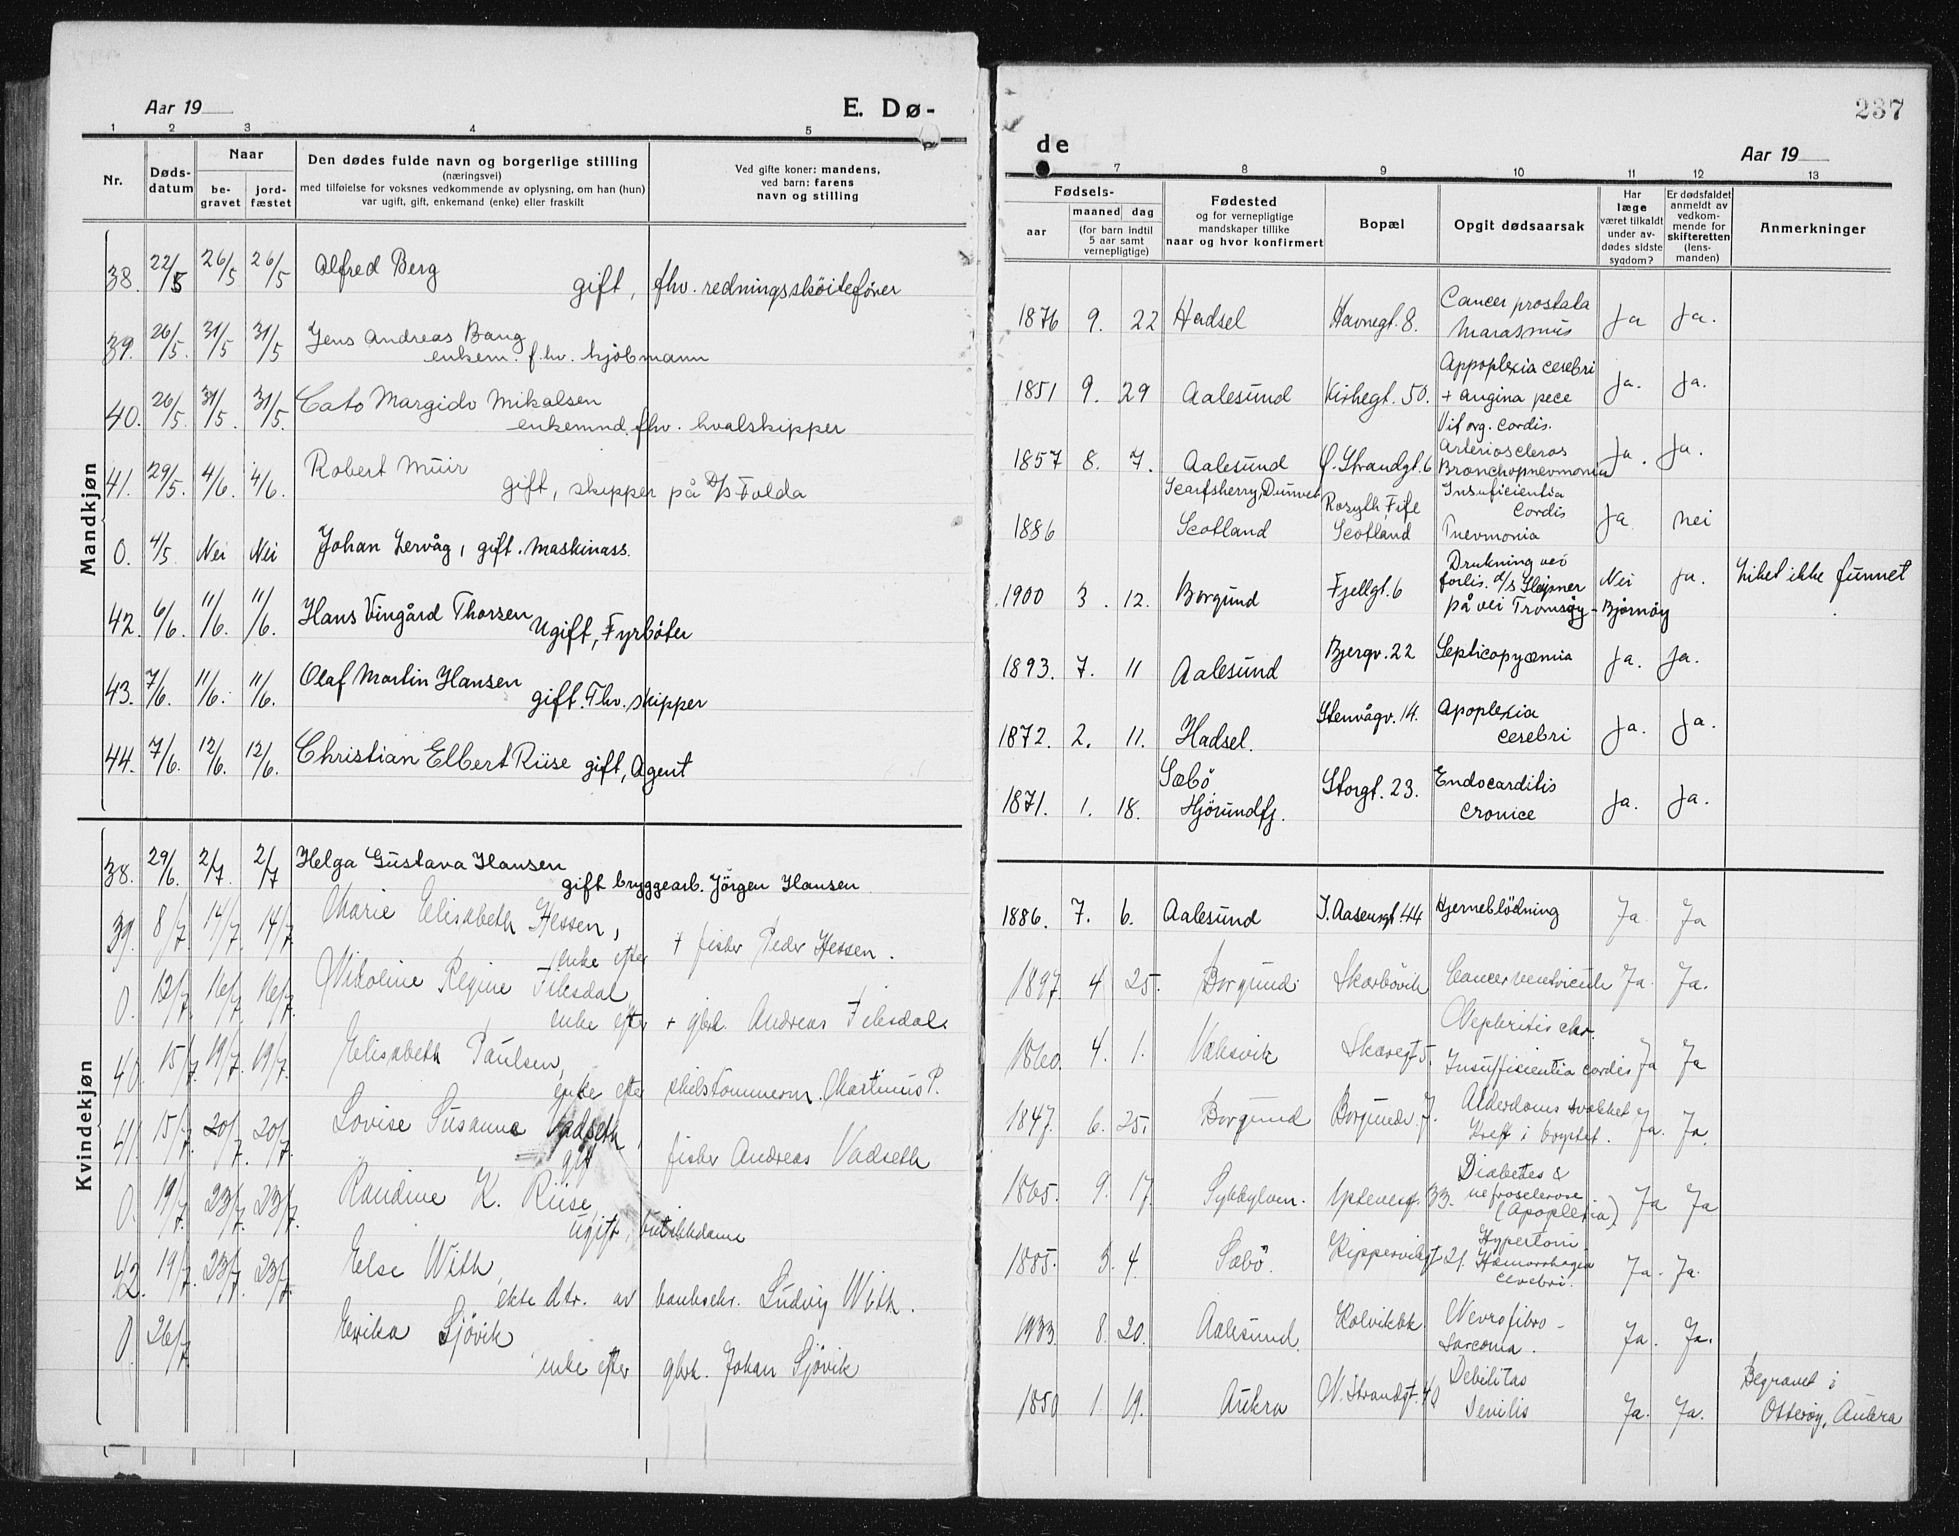 Aar 19
E. Dø-
1 2 3 4 5
Nr.
Døds-
datum
Naar
be-
gravet
jord-
fæstet
Den dødes fulde navn og borgerlige stilling
(næringsvei)
med tilføielse for voksnes vedkommende av oplysning, om han (hun)
var ugift, gift, enkemand (enke) eller fraskilt
Ved gifte koner: mandens,
ved barn: farens
navn og stilling
Mandkjøn
38. 22/5 26/5 26/5 Alfred Berg
gift, fhv. redningsskøitefører
39. 26/5. 31/5 31/5 Jens Andreas Bang
enkem. fhv. kjøbmann
40. 26/5. 31/5. 31/5. Cato Margido Mikalsen
enkemnd. fhv. hvalskipper
41. 29/5. 4/6. 4/6. Robert Muir
gift, skipper på D/S Folda
0. 4/5 Nei Nei Johan Lervåg, gift. Maskinass.
42. 6/6. 11/6. 11/6. Hans Vingård Thorsen
Ugift, Fyrbøter
43. 7/6. 11/6. 11/6. Olaf Martin Hansen
gift. Fhv. skipper
44. 7/6. 12/6. 12/6. Christian Elbert Riise gift, Agent
Kvindekjøn
38. 29/6. 2/7. 2/7 Helga Gustava Hansen
gift bryggearb. Jörgen Hansen
39. 8/7. 14/7. 14/7 Marie Elisabeth Hessen,
enke efter + fisker Peder Hessen.
0. 12/7 16/7 16/7. Nikoline Regine Fiksdal
enke efter + gbr. Andreas Fiksdal.
40. 15/7. 19/7. 19/7. Elisabeth Paulsen,
enke efter skibstømmerm. Martinus P.
41. 15/7. 20/7. 20/7. Lovise Susanne Vadseth,
gift fisker Andreas Vadseth
0. 19/7. 23/7. 23/7. Randine K. Riise,
ugift, butikkdame
42. 19/7. 23/7. 23/7. Else With,
ekte dtr. av banksekr. Ludvig With.
0. 26/7 Erika Sjövik
enke efter gbrk. Johan Sjövik
237
de
Aar 19
7 8 9 10 11 12 13
Fødsels-
aar
maaned dag
(for barn indtil
5 aar samt
vernepligtige)
Fødested
og for vernepligtige
mandskaper tillike
naar og hvor konfirmert
Bopæl
Opgit dødsaarsak
Har
læge
været tilkaldt
under av-
dødes sidste
sygdom?
Er dødsfaldet
anmeldt av
vedkom-
mende for
skifteretten
(lens-
manden)
Anmerkninger
1876 9. 22 Hadsel Havnegt. 8. Cancer prostata
Marasmus Ja Ja.
1851 9. 29 Aalesund Kirkegt. 50. Appoplexia cerebri
+ Angina pece Ja. Ja.
Vit org. cordis.
1857 8. 7. Aalesund Ø. Strandgt. 6 Arterioscleros
Bronchopnevmonia Ja. Ja.
1886 Scarfsherry, Dunnet
Scotland Rosyth Fife
Scotland Insuficientia
Cordis
Pnevmonia Ja nei
1900 3. 12. Borgund Fjellgt. 6 Drukning ved
forlis. D/S Sleipner
på vei Tromsøy-Bjørnøy Nei Ja. Liket ikke funnet
1893. 7. 11 Aalesund Bjergv. 22 Septicopyæmia Ja. Ja.
1872. 2. 11. Hadsel. Stenvågv. 14. Apoplexia
cerebri Ja. Ja.
1871. 1. 18. Sæbö
Hjörundfj. Storgt. 23. Endocarditis
cronice Ja. Ja.
1886. 7. 6. Aalesund I. Aasensgt 44 Hjerneblödning Ja Ja
1897. 4 25. Borgund. Skarbövik Cancer ventriculi Ja. Ja.
1860. 4. 1. Vaksvik Skaregt 5. Nephritis chr.
Insufficientia cordis Ja Ja
1847. 6. 25. Borgund Borgundv. 7. Alderdoms svakhet
Kreft i brystet. Ja. Ja.
1865. 9. 17. Sykkylven. 33. Diabetes &
nefrosclerose.
(Apoplexia) Ja Ja
1885. 3. 4. Sæbö. Kipperviksgt 21. Hypertoni
Hæmorrhagia
cerebri. Ja. Ja.
1933. 8. 20. Aalesund. Kolvikbk. Nevrofibro-
sarcoma. Ja. Ja.
1850 1. 19. Aukra N. Strandgt. 40 Debilitas
senilis Ja. Ja. Begravet i
Otterøy, Aukra